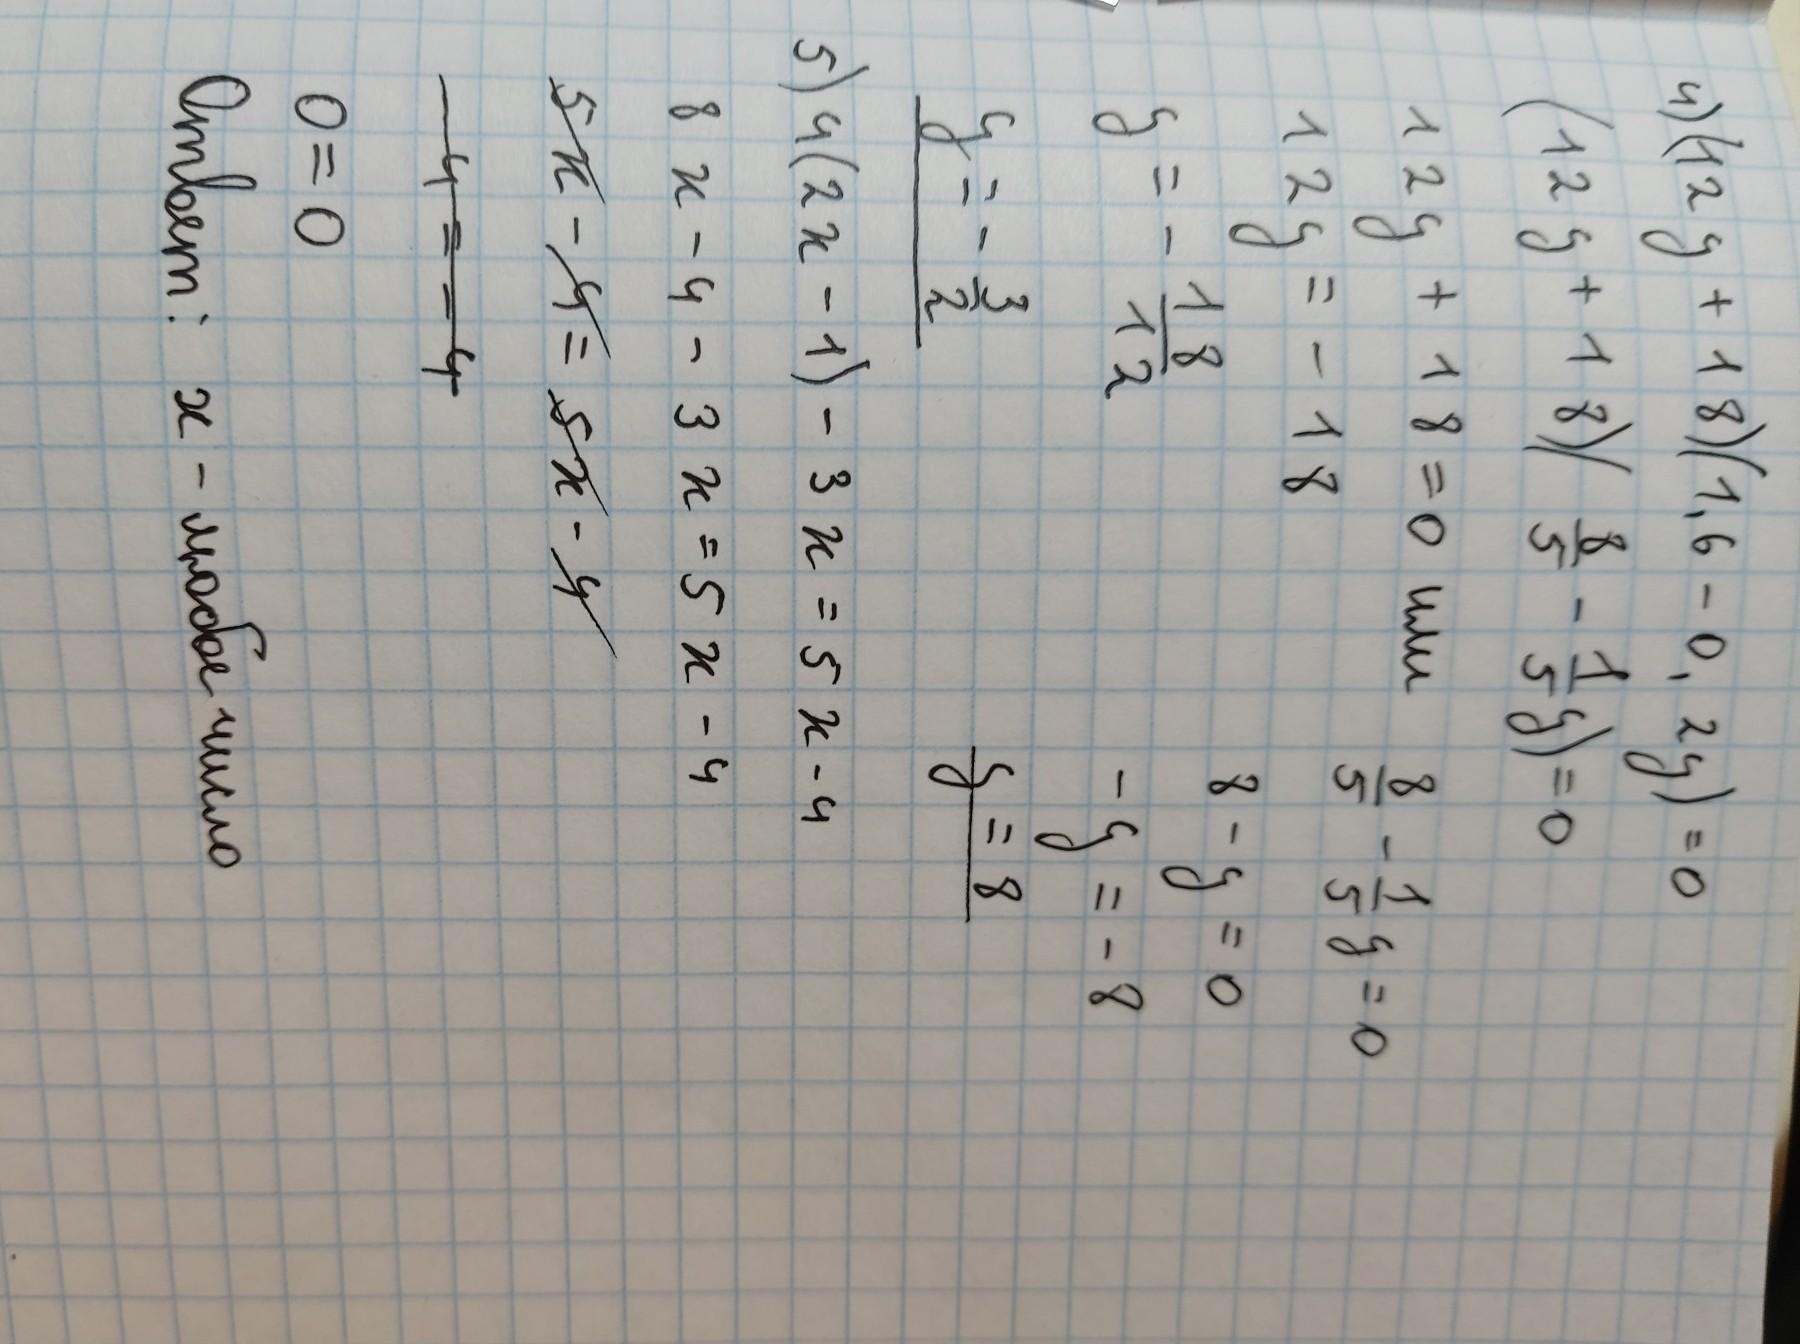 4) (12y + 18)(1,6 - 0,2y) = 0
(12y + 18)(8/5 - 1/5y) = 0
12y + 18 = 0 или 8/5 - 1/5y = 0
12y = - 18 8 - y = 0
y = - 18/12 - y = - 8
y = - 3/2 y = 8
5) 4(2x - 1) - 3x = 5x - 4
8x - 4 - 3x = 5x - 4
5x - 4 = 5x - 4
- 4 = - 4
0 = 0
Ответ: x - любое число